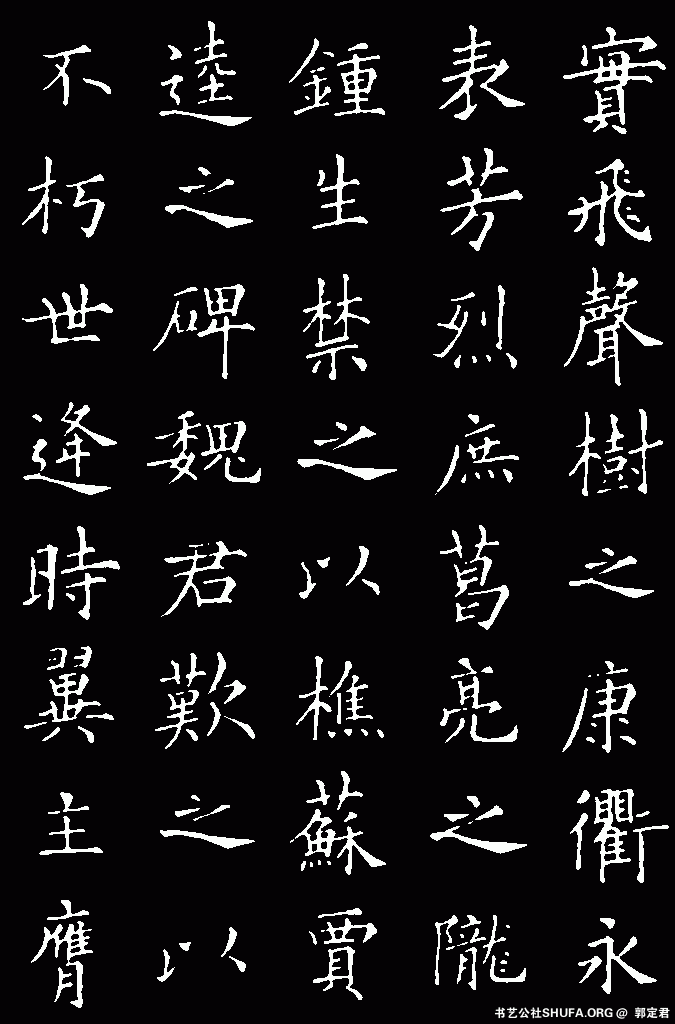 實飛聲樹之康衢永
表芳烈庶葛亮之隴
鍾生禁之以樵蘇賈
逵之碑魏君歎之以
不朽世逢時翼主膺
书艺公社SHUFA.ORG @ 郭定君